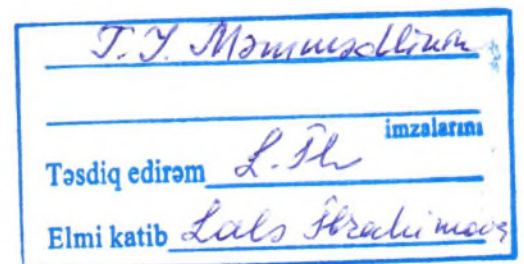 T.Y. Məmmədlinin
imzalarını
Təsdiq edirəm L. İb
Elmi katib Lalə İbrahimova